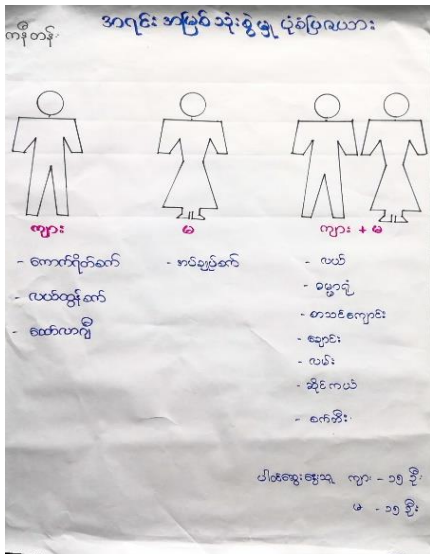 အရင်းအမြစ်သုံးစွဲမှု ပုံစံပြဇယား
ကနီတန်
ကျား
မ
ကျား + မ
- ကောက်ရိတ်စက်
- လယ်ထွန်စက်
- ထော်လာဂျီ
- အပ်ချုပ်စက်
- လယ်
- ဓမ္မာရုံ
- စာသင်ကျောင်း
- ချောင်း
- လမ်း
- ဆိုင်ကယ်
- စက်ဘီး
ပါဝင်ဆွေးနွေးသူ ကျား - ၁၅ ဦး
မ - ၁၅ ဦး